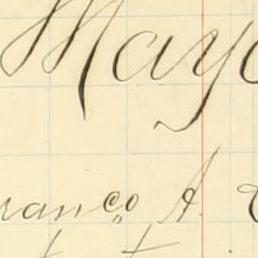 Mayo
ranco A.